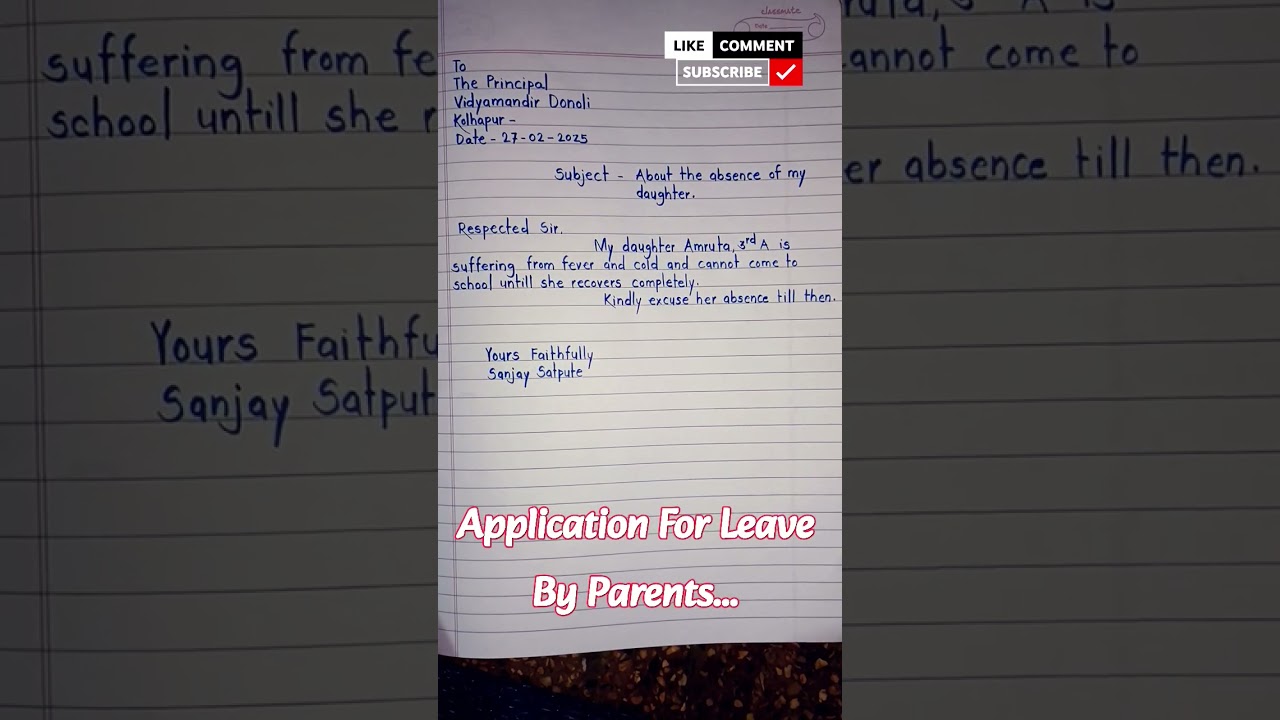 classmate
Date
LIKE COMMENT
SUBSCRIBE
To
The Principal
Vidyamandir Donoli
Kolhapur -
Date - 27-02-2025
Subject - About the absence of my
daughter.
Respected Sir.
My daughter Amruta, 3rd A is
suffering from fever and cold and cannot come to
school untill she recovers completely.
Kindly excuse her absence till then.
Yours Faithfully
Sanjay Satpute
Application For Leave
By Parents...
suffering from fe
school untill she r
Yours Faithfu
Sanjay Satput
annot come to
er absence till then.